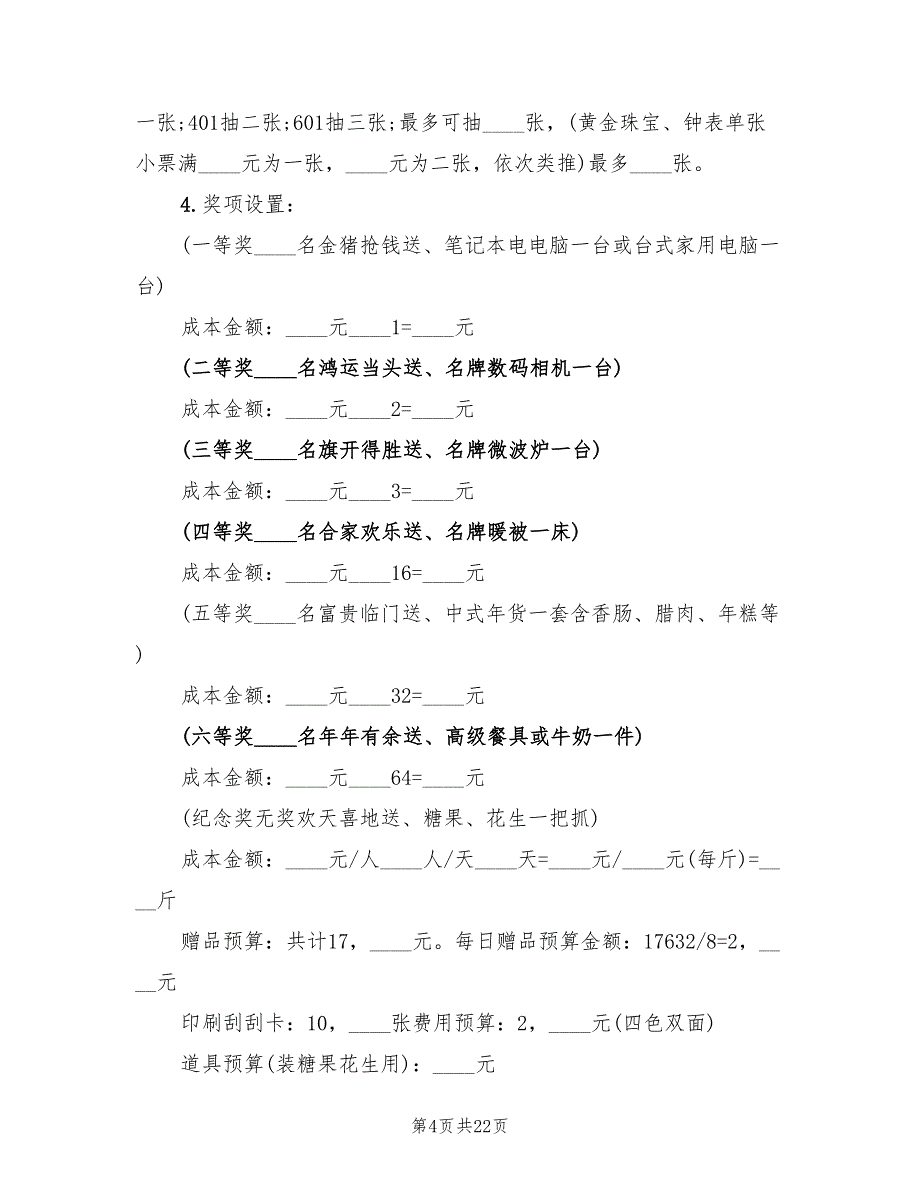 一张;401抽二张;601抽三张;最多可抽____张，(黄金珠宝、钟表单张
小票满____元为一张，____元为二张，依次类推)最多____张。
4.奖项设置：
(一等奖____名金猪抢钱送、笔记本电电脑一台或台式家用电脑一
台)
成本金额：____元____1=____元
(二等奖____名鸿运当头送、名牌数码相机一台)
成本金额：____元____2=____元
(三等奖____名旗开得胜送、名牌微波炉一台)
成本金额：____元____3=____元
(四等奖____名合家欢乐送、名牌暖被一床)
成本金额：____元____16=____元
(五等奖____名富贵临门送、中式年货一套含香肠、腊肉、年糕等
)
成本金额：____元____32=____元
(六等奖____名年年有余送、高级餐具或牛奶一件)
成本金额：____元____64=____元
(纪念奖无奖欢天喜地送、糖果、花生一把抓)
成本金额：____元/人____人/天____天=____元/____元(每斤)=__
__斤
赠品预算：共计17，____元。每日赠品预算金额：17632/8=2，__
__元
印刷刮刮卡：10，____张费用预算：2，____元(四色双面)
道具预算(装糖果花生用)：____元
第4页共22页